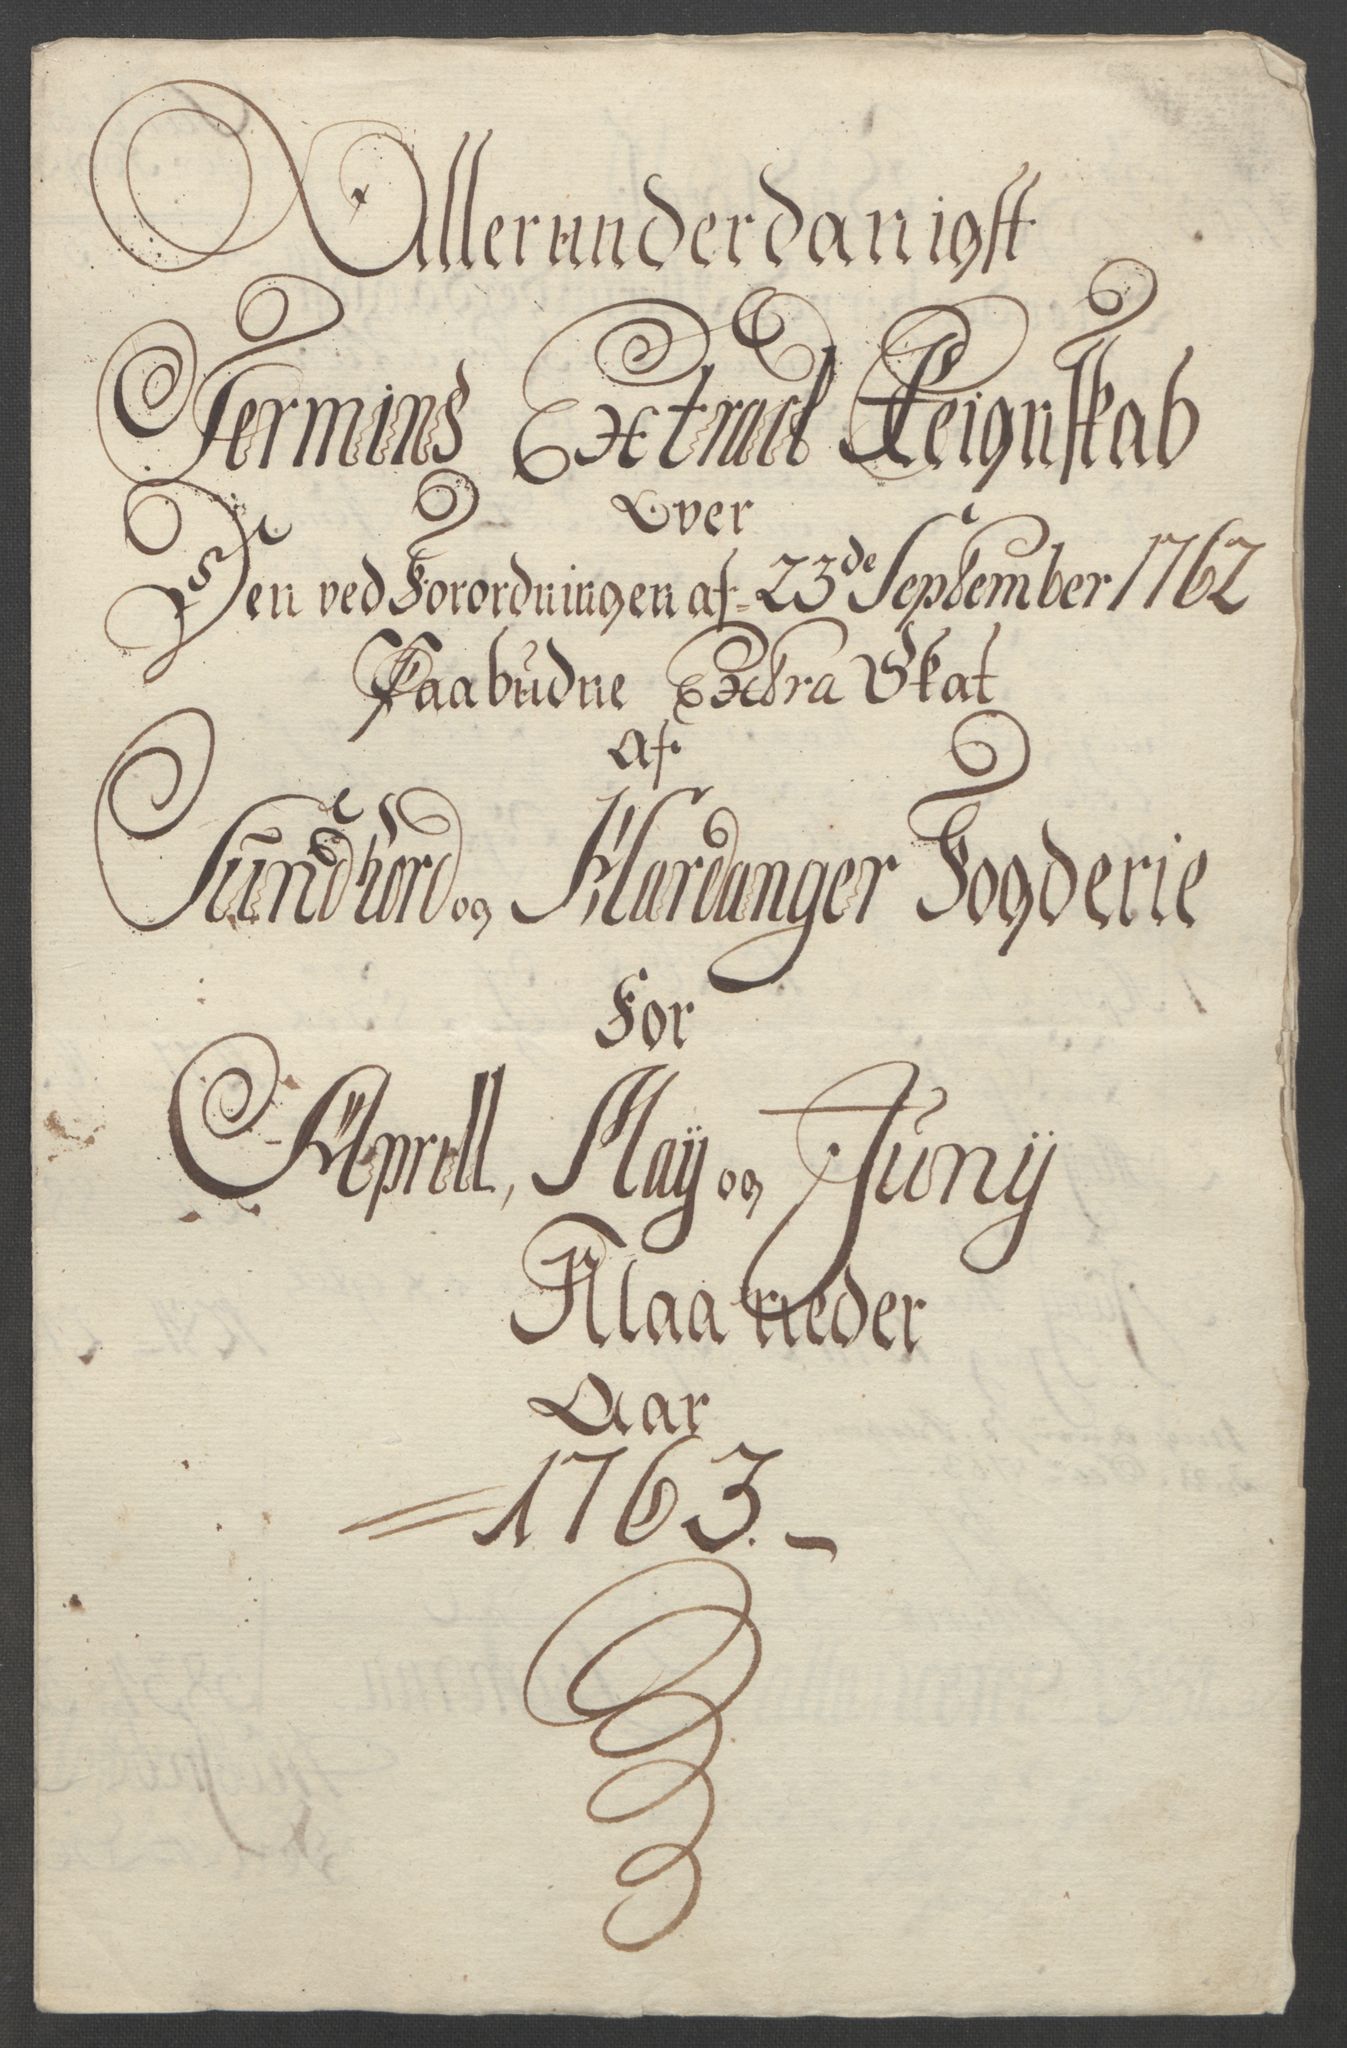 Allerunderdanigst
Termins Extract Reignskab
Over
Den ved Forordningen af 23de September 1762
Paabudne Extra Skat
Af
Sundhord og Hardanger Fogderie
For
Aprill, Maÿ og Junÿ
Maaneder
Aar
1763.